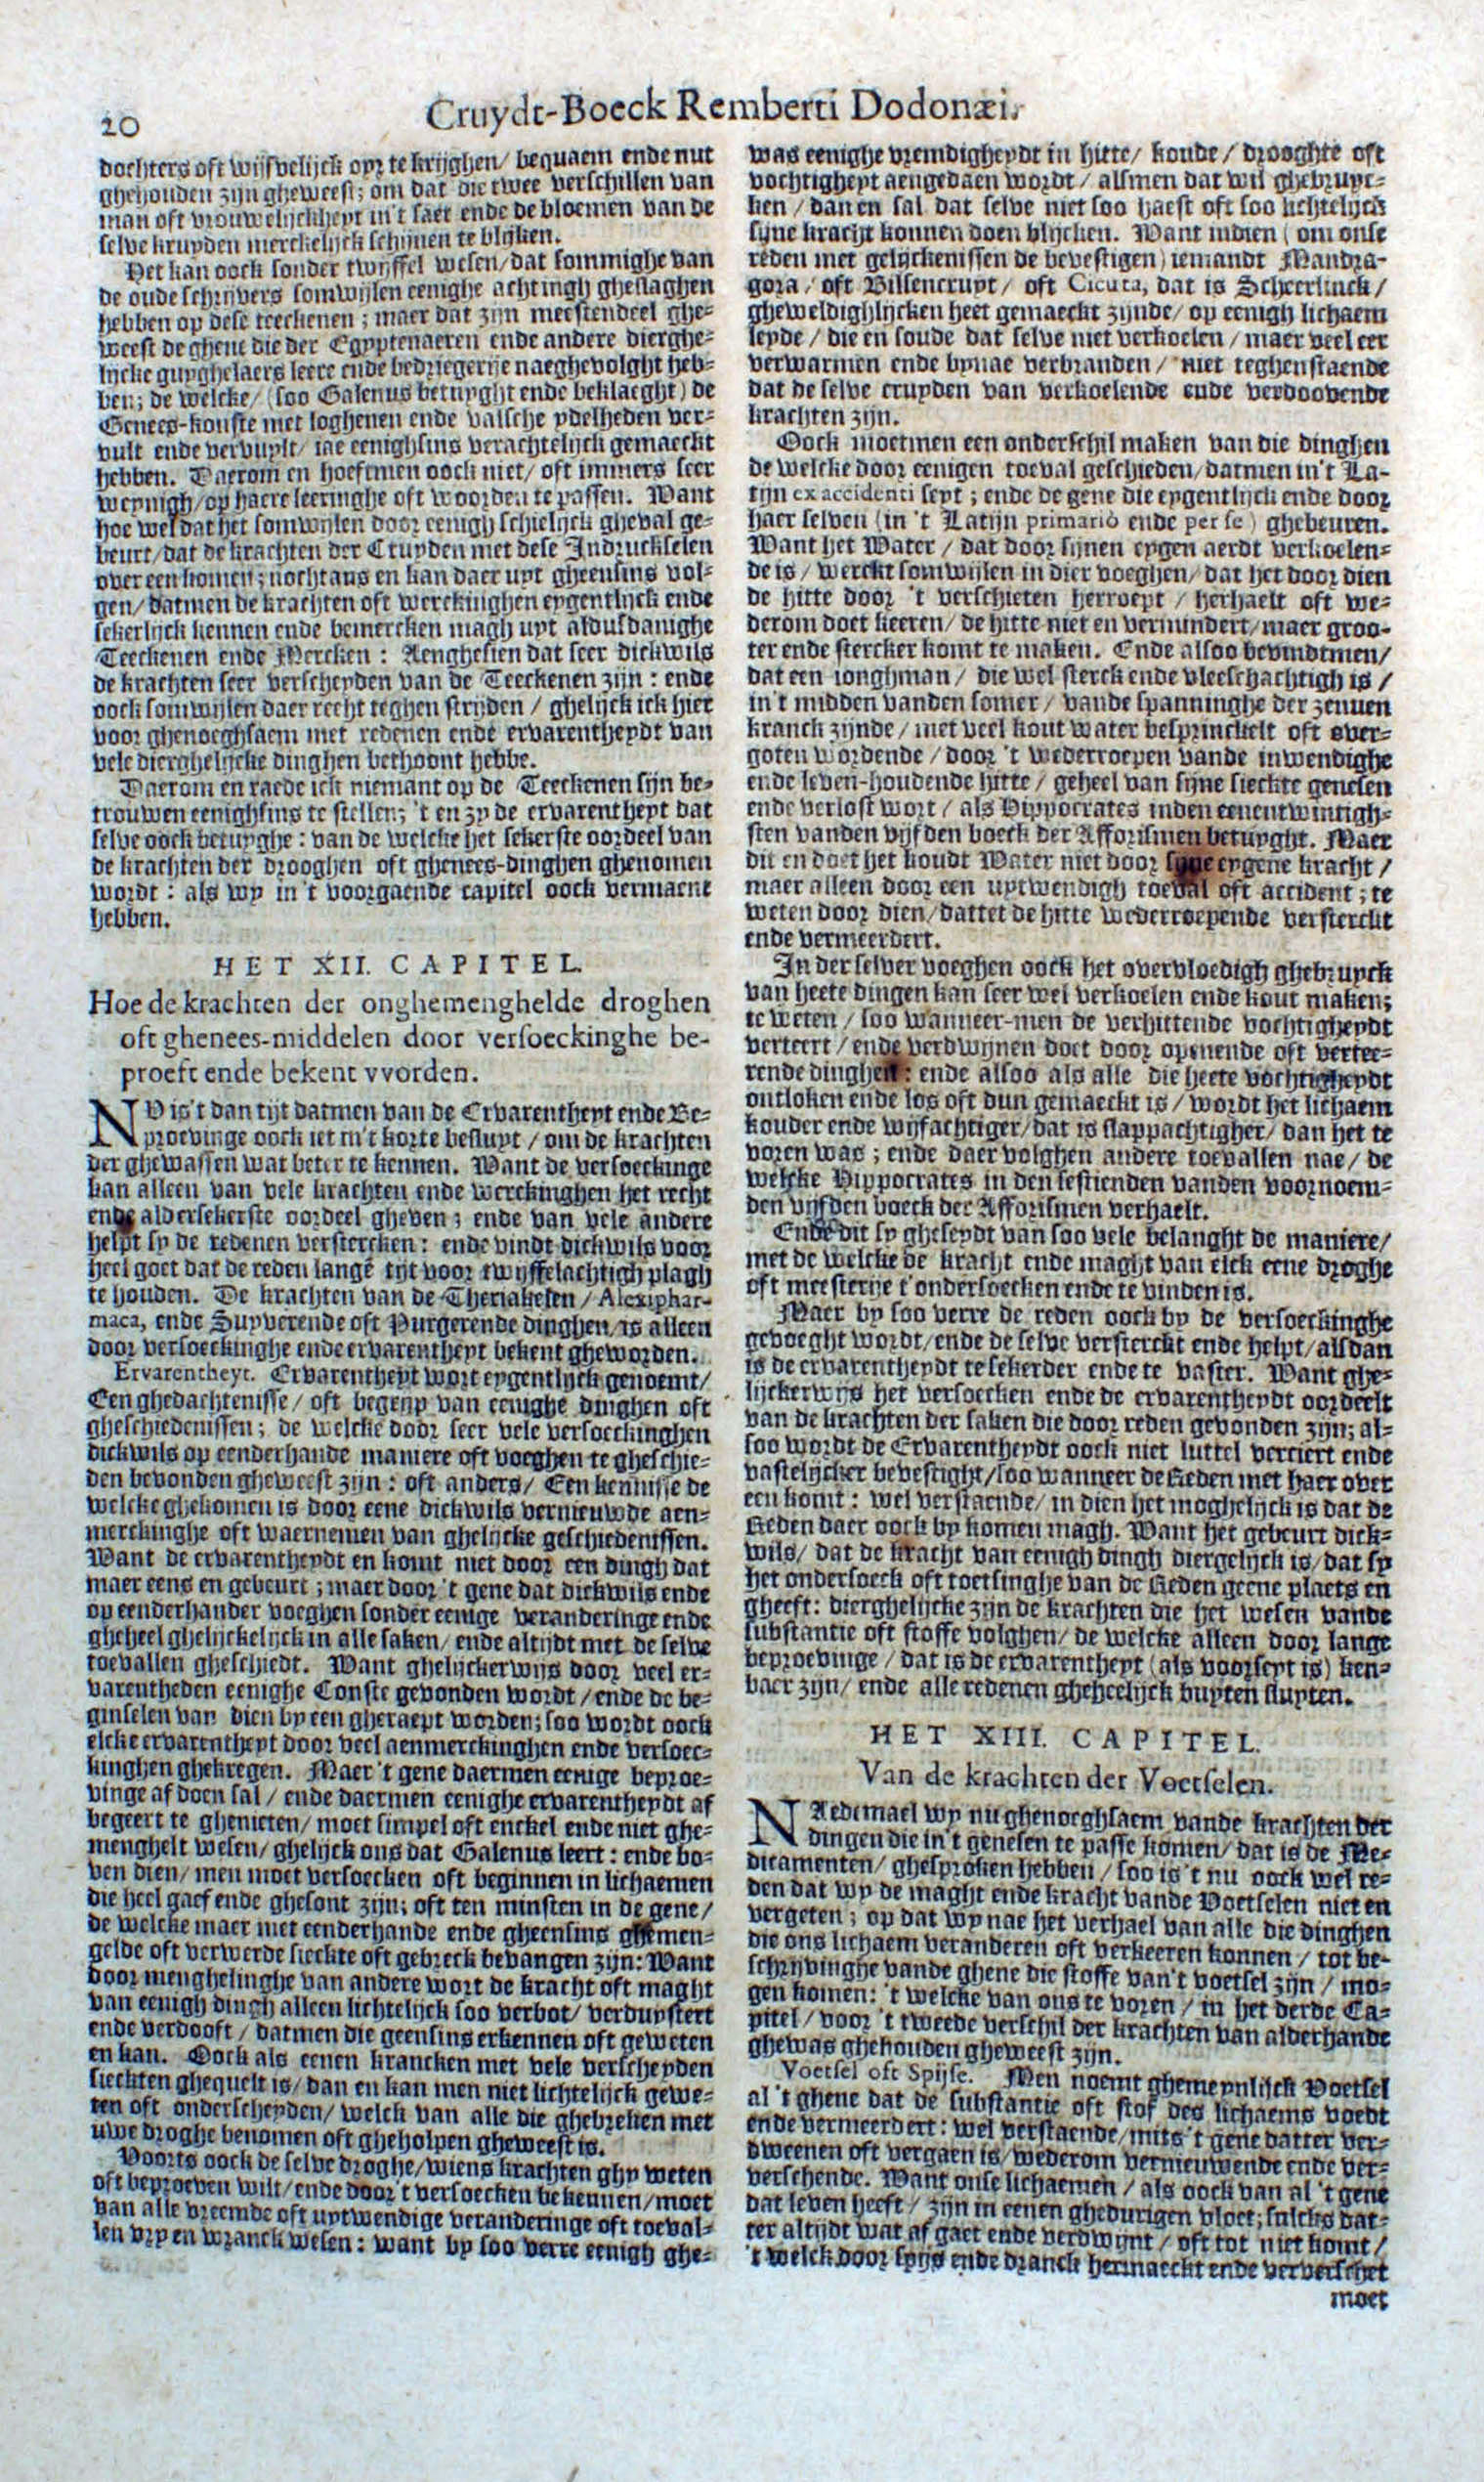 20
Cruydt-Boeck Remberti Dodonæi.
dochters oft wijfvelijck oyr te krijghen/ bequaem ende nut
ghehouden zijn gheweest; om dat die twee verschillen van
man oft vrouwelijckheyt in't saet ende de bloemen van de
selve kruyden merckelijck schijnen te blijken.
Het kan oock sonder twijffel wesen/ dat sommighe van
de oude schrijvers somwijlen eenighe achtingh gheslaghen
hebben op dese teeckenen; maer dat zijn meestendeel ghe-
weest de ghene die der Egyptenaeren ende andere dierghe-
lijcke guyghelaers leere ende bedriegerije naeghevolght heb-
ben; de welcke/ (soo Galenus betuyght ende beklaeght) de
Genees-konste met loghenen ende valsche ydelheden ver-
vult ende vervuylt/ iae eenighsins verachtelijck gemaeckt
hebben. Daerom en hoeftmen oock niet/ oft immers seer
weynigh/ op haere leeringhe oft woorden te passen. Want
hoe wel dat het somwijlen door eenigh schielijck gheval ge-
beurt/ dat de krachten der Cruyden met dese Indruckselen
over een komen; nochtans en kan daer uyt gheensins vol-
gen/ datmen de krachten oft werckinghen eygentlijck ende
sekerlijck kennen ende bemercken magh uyt aldusdanighe
Teeckenen ende Mercken: Aenghesien dat seer dickwils
de krachten seer verscheyden van de Teeckenen zijn: ende
oock somwijlen daer recht teghen strijden/ ghelijck ick hier
voor ghenoeghsaem met redenen ende ervarentheydt van
vele dierghelijcke dinghen bethoont hebbe.
Daerom en raede ick niemant op de Teeckenen sijn be-
trouwen eenighsins te stellen; 't en zy de ervarentheyt dat
selve oock betuyghe: van de welcke het sekerste oordeel van
de krachten der drooghen oft ghenees-dinghen ghenomen
wordt: als wy in 't voorgaende capitel oock vermaent
hebben.
HET XII. CAPITEL.
Hoe de krachten der onghemenghelde droghen
oft ghenees-middelen door versoeckinghe be-
proeft ende bekent vvorden.
NU is't dan tijt datmen van de Ervarentheyt ende Be-
proevinge oock iet in't korte besluyt/ om de krachten
der ghewassen wat beter te kennen. Want de versoeckinge
kan alleen van vele krachten ende werckinghen het recht
ende aldersekerste oordeel gheven; ende van vele andere
helpt sy de redenen verstercken: ende vindt dickwils voor
heel goet dat de reden lange tijt voor twijffelachtigh plagh
te houden. De krachten van de Theriakelen/ Alexiphar-
maca, ende Suyverende oft Purgerende dinghen/ is alleen
door versoeckinghe ende ervarentheyt bekent gheworden.
Ervarentheyt. Ervarentheyt wort eygentlijck genoemt/
Een ghedachtenisse/ oft begrijp van eenighe dinghen oft
gheschiedenissen; de welcke door seer vele versoeckinghen
dickwils op eenderhande maniere oft voeghen te gheschie-
den bevonden gheweest zijn: oft anders/ Een kennisse de
welcke ghekomen is door eene dickwils vernieuwde aen-
merckinghe oft waernemen van ghelijcke geschiedenissen.
Want de ervarentheydt en komt niet door een dingh dat
maer eens en gebeurt; maer door 't gene dat dickwils ende
op eenderhander voeghen sonder eenige veranderinge ende
gheheel ghelijckelijck in alle saken/ ende altijdt met de selve
toevallen gheschiedt. Want ghelijckerwijs door veel er-
varentheden eenighe Conste gevonden wordt/ ende de be-
ginselen van dien by een gheraept worden; soo wordt oock
elcke ervarentheyt door veel aenmerckinghen ende versoec-
kinghen ghekregen. Maer 't gene daermen eenige beproe-
vinge af doen sal/ ende daermen eenighe ervarentheydt af
begeert te ghenieten/ moet simpel oft enckel ende niet ghe-
menghelt wesen/ ghelijck ons dat Galenus leert: ende bo-
ven dien/ men moet versoecken oft beginnen in lichaemen
die heel gaef ende ghesont zijn; oft ten minsten in de gene/
de welcke maer met eenderhande ende gheensins ghemen-
gelde oft verwerde sieckte oft gebreck bevangen zijn: Want
door menghelinghe van andere wort de kracht oft maght
van eenigh dingh alleen lichtelijck soo verbot/ verduystert
ende verdooft/ datmen die geensins erkennen oft geweten
en kan. Oock als eenen krancken met vele verscheyden
sieckten ghequelt is/ dan en kan men niet lichtelijck gewe-
ten oft onderscheyden/ welck van alle die ghebreken met
uwe droghe benomen oft gheholpen gheweest is.
Voorts oock de selve droghe/ wiens krachten ghy weten
oft beproeven wilt/ ende door 't versoecken bekennen/ moet
van alle vreemde oft uytwendige veranderinge oft toeval-
len vry en vranck wesen: want by soo verre eenigh ghe-
was eenighe vremdigheydt in hitte/ koude/ drooghte oft
vochtigheyt aengedaen wordt/ alsmen dat wil ghebruyc-
ken/ dan en sal dat selve niet soo haest oft soo lichtelijck
sijne kracht konnen doen blijcken. Want indien (om onse
reden met gelijckenissen de bevestigen) iemandt Mandra-
gora/ oft Bilsencruyt/ oft Cicuta, dat is Scheerlinck/
gheweldighlijcken heet gemaeckt zijnde/ op eenigh lichaem
leyde/ die en soude dat selve niet verkoelen/ maer veel eer
verwarmen ende bynae verbranden/ niet teghenstaende
dat de selve cruyden van verkoelende ende verdoovende
krachten zijn.
Oock moetmen een onderschil maken van die dinghen
de welcke door eenigen toeval geschieden/ datmen in't La-
tijn ex accidenti seyt; ende de gene die eygentlijck ende door
haer selven (in 't Latijn primariò ende per se) ghebeuren.
Want het Water/ dat door sijnen eygen aerdt verkoelen-
de is/ werckt somwijlen in dier voeghen/ dat het door dien
de hitte door 't verschieten herroept/ herhaelt oft we-
derom doet keeren/ de hitte niet en vermindert/ maer groo-
ter ende stercker komt te maken. Ende alsoo bevindtmen/
dat een ionghman/ die wel sterck ende vleeschachtigh is/
in't midden vanden somer/ vande spanninghe der zenuen
kranck zijnde/ met veel kout water besprinckelt oft over-
goten wordende/ door 't wederroepen vande inwendighe
ende leven-houdende hitte/ geheel van sijne sieckte genesen
ende verlost wort/ als Hippocrates inden eenentwintigh-
sten vanden vijfden boeck der Afforismen betuyght. Maer
dit en doet het koudt Water niet door sijne eygene kracht/
maer alleen door een uytwendigh toeval oft accident; te
weten door dien/ dattet de hitte wederroepende versterckt
ende vermeerdert.
In der selver voeghen oock het overvloedigh ghebruyck
van heete dingen kan seer wel verkoelen ende kout maken;
te weten/ soo wanneer-men de verhittende vochtigheydt
verteert/ ende verdwijnen doet door openende oft vertee-
rende dinghen: ende alsoo als alle die heete vochtigheydt
ontloken ende los oft dun gemaeckt is/ wordt het lichaem
kouder ende wijfachtiger/ dat is slappachtigher/ dan het te
voren was; ende daer volghen andere toevallen nae/ de
welcke Hippocrates in den sestienden vanden voornoem-
den vijfden boeck der Afforismen verhaelt.
Ende dit sy gheseydt van soo vele belanght de maniere/
met de welcke de kracht ende maght van elck eene droghe
oft meesterije t'ondersoecken ende te vinden is.
Maer by soo verre de reden oock by de versoeckinghe
gevoeght wordt/ ende de selve versterckt ende helpt/ alsdan
is de ervarentheydt te sekerder ende te vaster. Want ghe-
lijckerwijs het versoecken ende de ervarentheydt oordeelt
van de krachten der saken die door reden gevonden zijn; al-
soo wordt de Ervarentheydt oock niet luttel verciert ende
vastelijcker bevestight/ soo wanneer de Reden met haer over
een komt: wel verstaende/ in dien het moghelijck is dat de
Reden daer oock by komen magh. Want het gebeurt dick-
wils/ dat de kracht van eenigh dingh diergelijck is/ dat sy
het ondersoeck oft toetsinghe van de Reden geene plaets en
gheeft: dierghelijcke zijn de krachten die het wesen vande
substantie oft stoffe volghen/ de welcke alleen door lange
beproevinge/ dat is de ervarentheyt (als voorseyt is) ken-
baer zijn/ ende alle redenen gheheelijck buyten sluyten.
HET XIII. CAPITEL.
Van de krachten der Voetselen.
NAedemael wy nu ghenoeghsaem vande krachten der
dingen die in't genesen te passe komen/ dat is de Me-
dicamenten/ ghesproken hebben/ soo is 't nu oock wel re-
den dat wy de maght ende kracht vande Voetselen niet en
vergeten; op dat wy nae het verhael van alle die dinghen
die ons lichaem veranderen oft verkeeren konnen/ tot be-
schrijvinghe vande ghene die stoffe van't voetsel zijn/ mo-
gen komen: 't welcke van ons te voren/ in het derde Ca-
pitel/ voor 't tweede verschil der krachten van alderhande
ghewas ghehouden gheweest zijn.
Voetsel oft Spijse. Men noemt ghemeynlijck Voetsel
al 't ghene dat de substantie oft stof des lichaems voedt
ende vermeerdert: wel verstaende/ mits 't gene datter ver-
dweenen oft vergaen is/ wederom vernieuwende ende ver-
verschende. Want onse lichaemen/ als oock van al 't gene
dat leven heeft/ zijn in eenen ghedurigen vloet; sulcks dat-
ter altijdt wat af gaet ende verdwijnt/ oft tot niet komt/
't welck door spijs ende dranck hermaeckt ende ververschet
moet